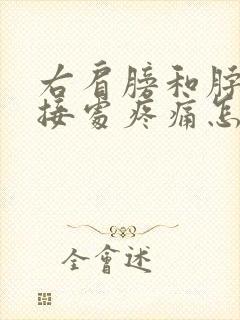 右肩膀和脖
接处疼痛怎
全會述